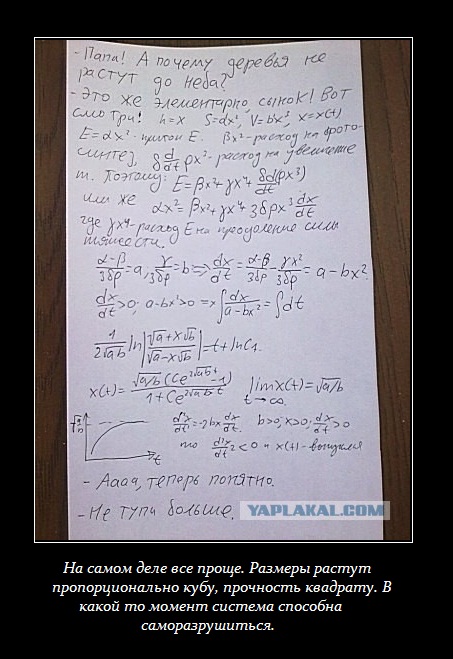 - Папа! А почему деревья не
растут до неба?
- Это же элементарно, сынок! Вот
смотри! h=x S=dx², V=bx³, x=x(t)
E=αx² - приток E. βx² - расход на фото-
синтез, δ d/dt ρx³ - расход на увеличение
m. Поэтому: E=βx²+γx⁴+δd(ρx³)/dt
или же αx²=βx²+γx⁴+3δρx³ dx/dt
где γx⁴ - расход E на преодоление силы
тяжести.
(α-β)/3δρ=a, γ/3δρ=b => dx/dt=(α-β)/3δρ - γx²/3δρ = a-bx².
dx/dt>0; a-bx²>0 => ∫dx/(a-bx²)=∫dt
1/(2√ab) ln|(√a+x√b)/(√a-x√b)|=t+lnC₁.
x(t)=√a/b (Ce^(2√ab t)-1)/(1+Ce^(2√ab t)) lim x(t)=√a/b
t→∞.
√a/b d²x/dt²=-2bx dx/dt. b>0; x>0; dx/dt>0
t то d²x/dt²<0 и x(t) - выпукла
- Аааа, теперь понятно.
- Не тупи больше.
YAPLAKAL.COM
На самом деле все проще. Размеры растут
пропорционально кубу, прочность квадрату. В
какой то момент система способна
саморазрушиться.